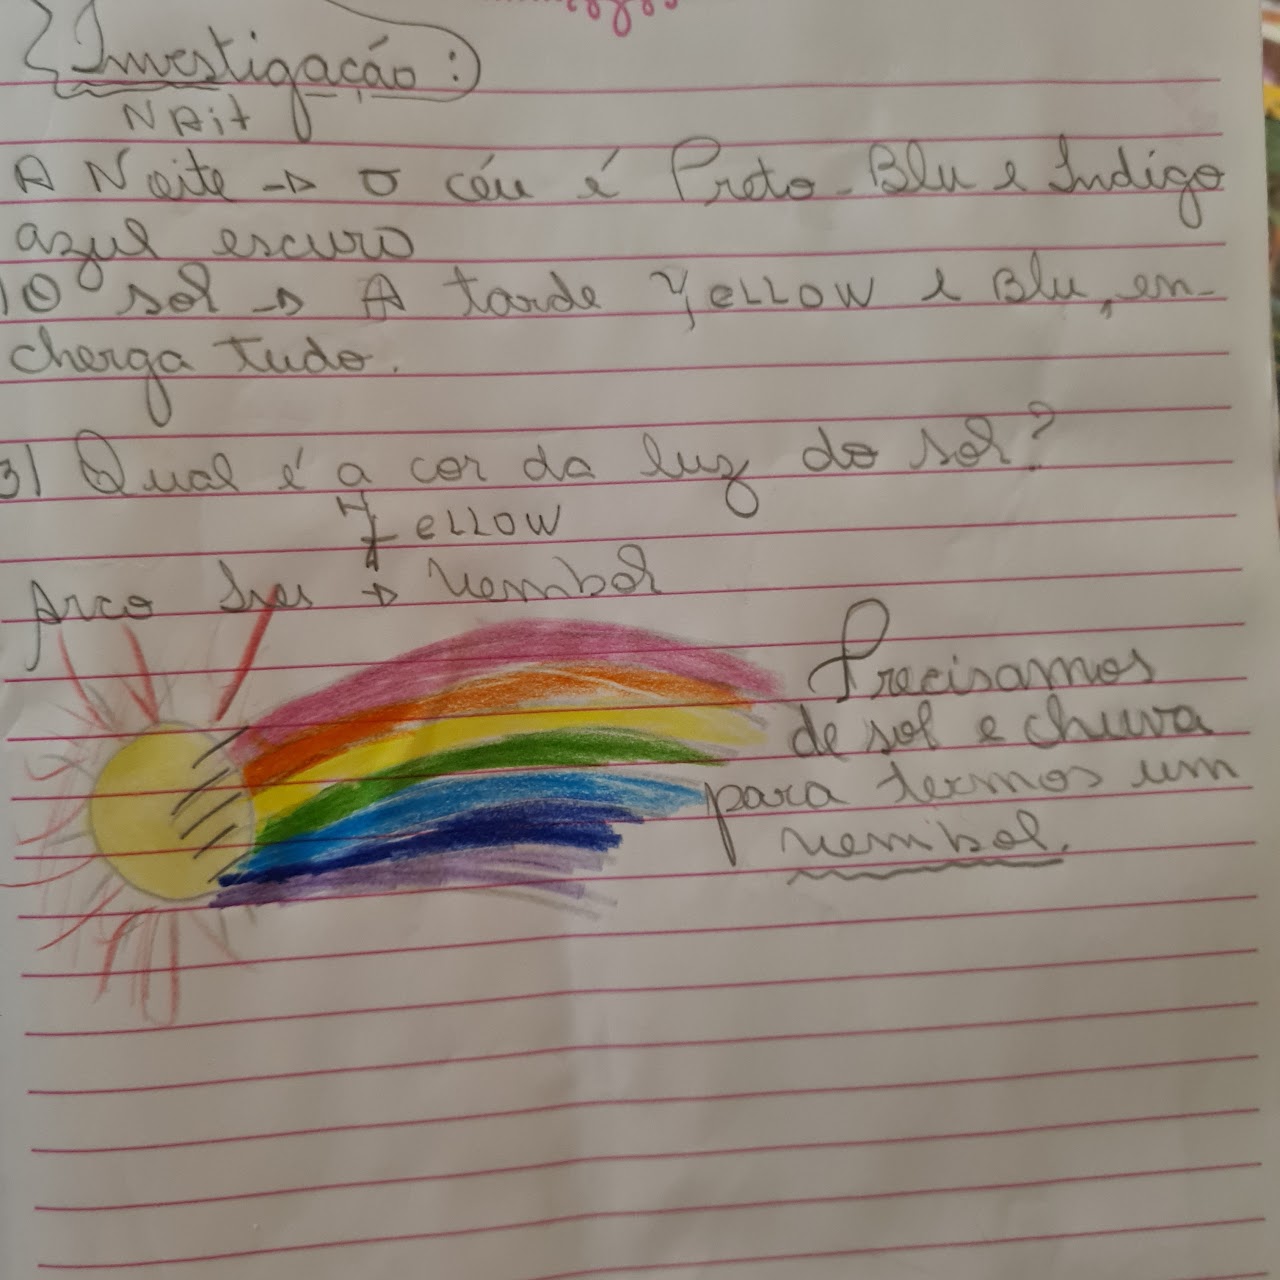 Investigação:
NAit
A Noite → O céu é Preto - Blu e Indigo
azul escuro
O sol → A tarde YELLOW e Blu, en-
cherga tudo.
3) Qual é a cor da luz do sol?
YELLOW
Arco Ires → Rembol
Precisamos
de sol e chuva
para termos um
rembol.